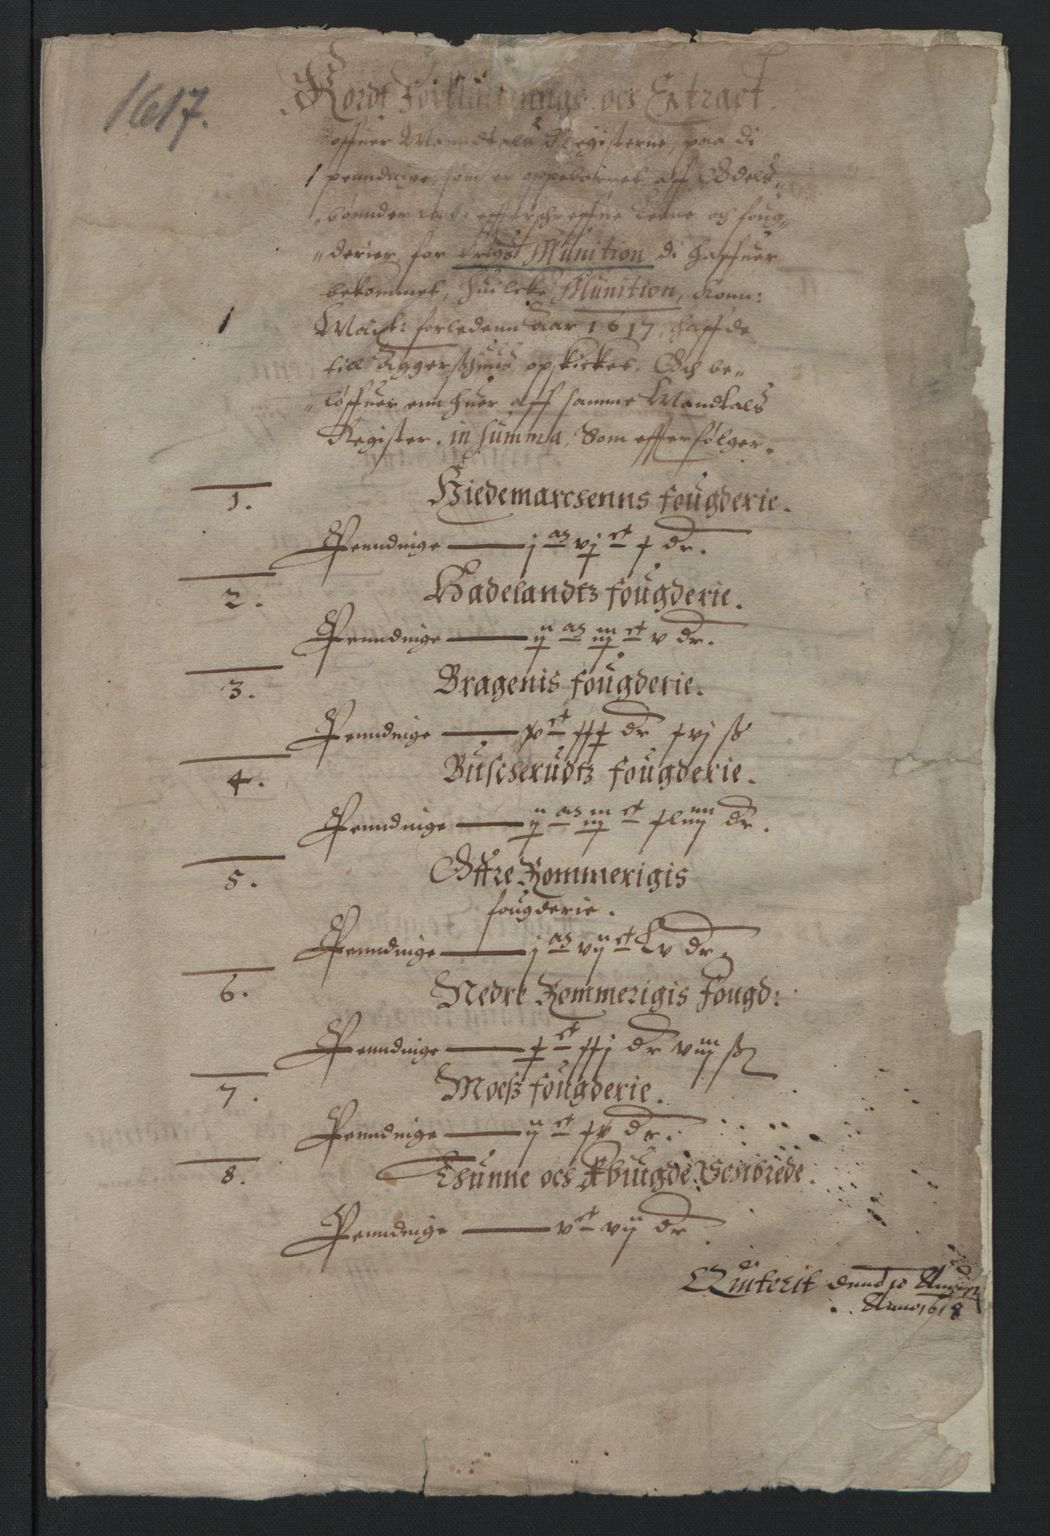 1617.
Kordt och Extract.
offuer Manndtals Registerne, paa di
penndinge, som er oppebaaret aff Odels
bønnder effterschreffne Lenne och foug-
derier, for Munition di haffuer
bekommet, huilcke Munition, Konn:
Mait: forledenn Aar 1617, haffde
till Aggershuus opskicket. Och be-
løffuer enn huer aff samme Mandtals
Register. in summa. Som effterfølger.
1.
Hiedemarckenns fougderie.
Penndinge — j m vj ct x dr.
2.
Hadelandtz fougderie.
Penndinge — ij m iij ct v dr.
3.
Bragenis fougderie.
Penndinge — ct xxx dr xvj ß
4.
Buscherudtz fougderie.
Penndinge — ij m iij ct dr.
5.
Øffre Rommerigis
fougderie.
Penndinge — j m vij ct Lv dr
6.
Nedre Rommerigis fougd:
Penndinge — x ct xxj dr viij ß
7.
Moeß fougderie.
Penndinge — ij ct dr.
8.
Thunne och Abuigde Schibrede.
Penndinge — v ct vij dr
Qviterit dend 10
Anno 1618